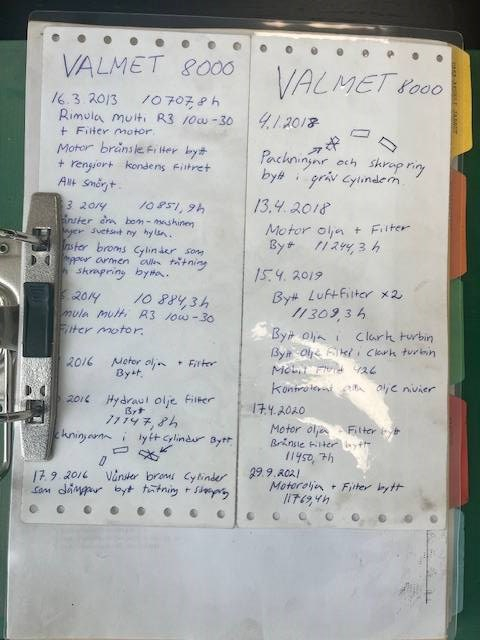 VALMET 8000
16.3.2013 10707,8h
Rimula multi R3 10w-30
+ Filter motor.
Motor bränslefilter bytt
+ rengjort kondens filtret
Allt smörjt.
3.2014 10851,9h
änster öra bom-maschinen
ager svetsat ny hylsa.
nster broms Cylinder som
mppar armen alla tätning
h skrapring bytta.
5.2014 10884,3h
imula multi R3 10w-30
Filter motor.
2016 Motor olja + Filter
Bytt.
2016 Hydraul olje filter
Bytt
11147,8h
ckningarna i lyft cylinder Bytt
17.9.2016 Vänster broms Cylinder
som dämppar bytt tätning + skrapring
VALMET 8000
4.1.2018
Packningar och skrapring
bytt i gräv Cylindern.
13.4.2018
Motor olja + Filter
Bytt 11244,3h
15.4.2019
Bytt Luftfilter x2
11309,3h
Bytt olja i Clark turbin
Bytt olje filtel i Clark turbin
Mobil Fluid 426
Kontrolerat alla olje nivåer
17.4.2020
Motor olja + Filter bytt
Bränsle filter bytt
11450,7h
29.9.2021
Motorolja + Filter bytt
11769,4h